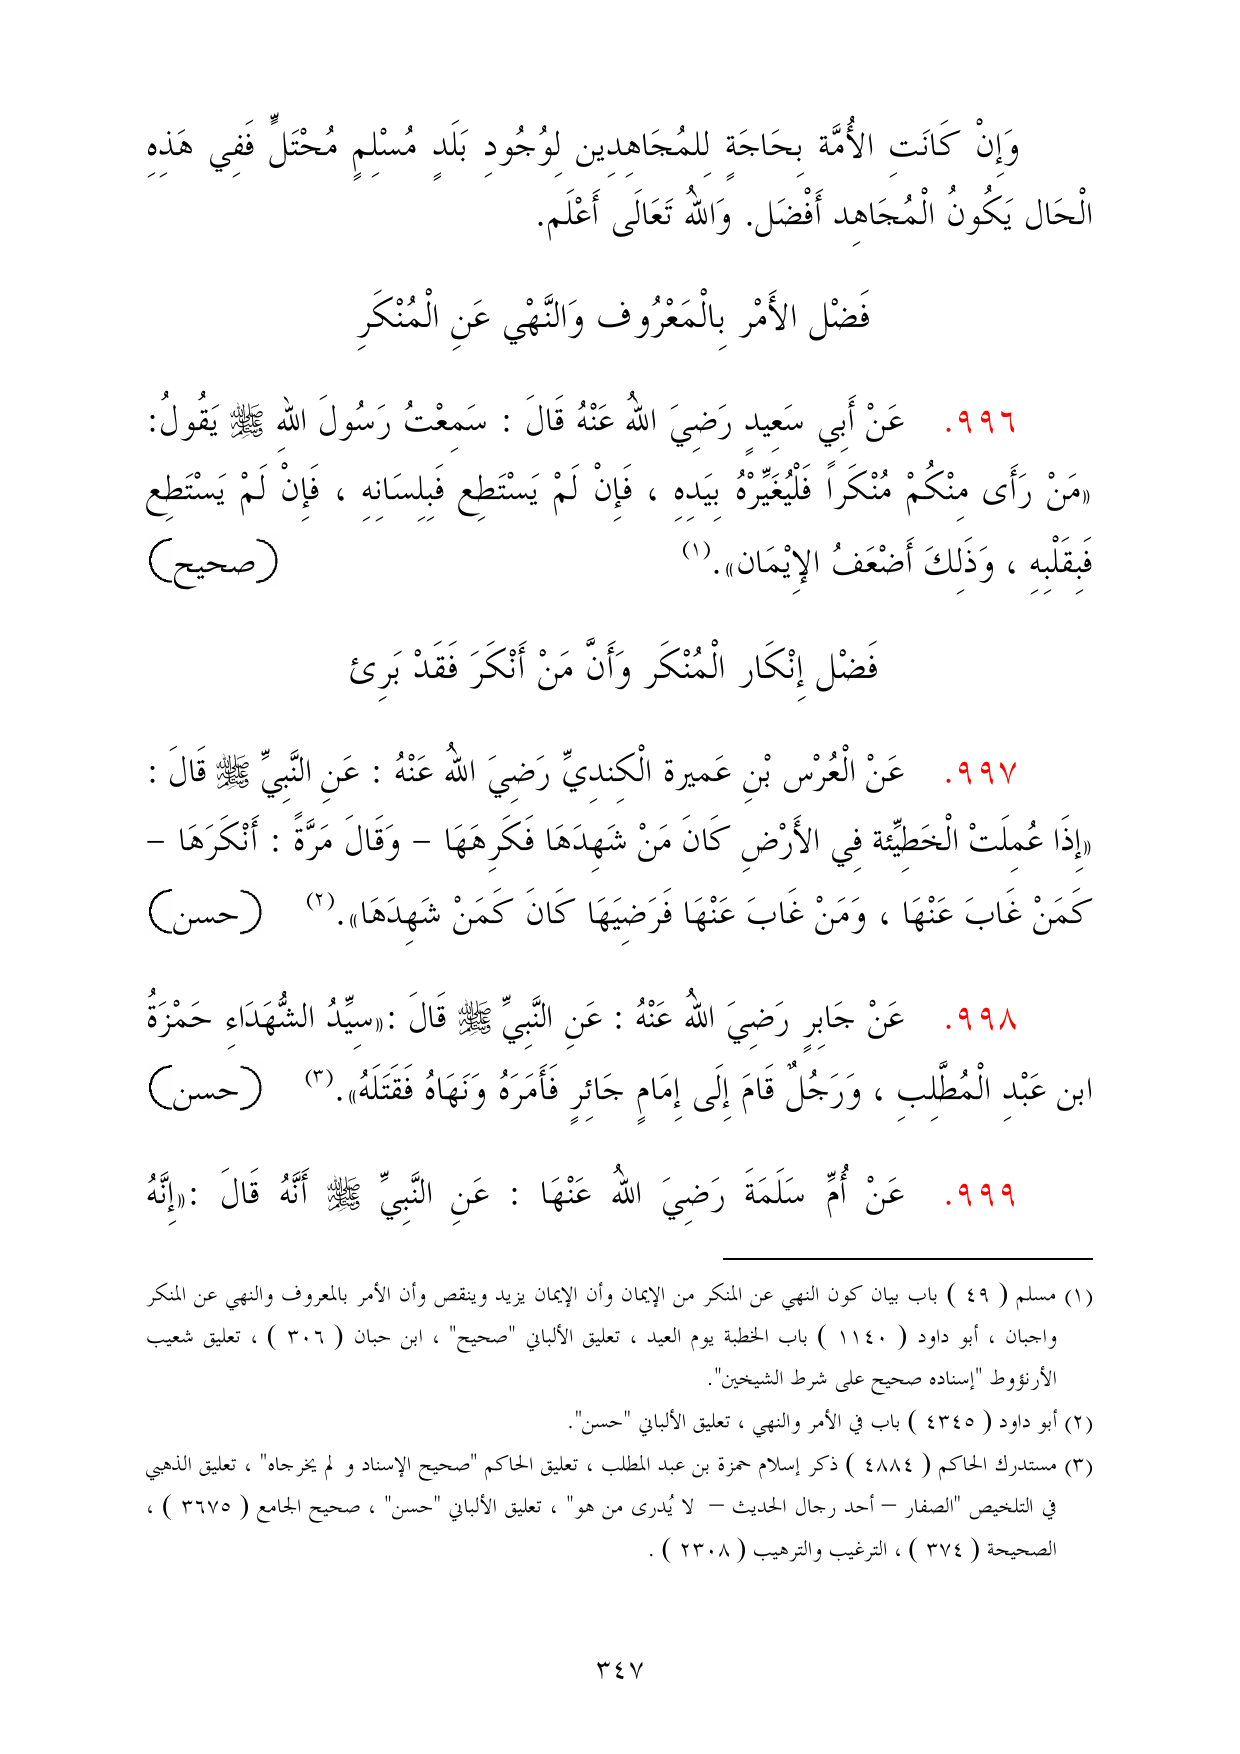 وَإِنْ كَانَتِ الأُمَّة بِحَاجَةٍ لِلمُجَاهِدِين لِوُجُودِ بَلَدٍ مُسْلِمٍ مُحْتَلٍّ فَفِي هَذِهِ
الْحَال يَكُونُ الْمُجَاهِد أَفْضَل. وَاللهُ تَعَالَى أَعْلَم.
فَضْل الأَمْر بِالْمَعْرُوف وَالنَّهْي عَنِ الْمُنْكَرِ
٩٩٦. عَنْ أَبِي سَعِيدٍ رَضِيَ اللهُ عَنْهُ قَالَ : سَمِعْتُ رَسُولَ اللهِ ﷺ يَقُولُ:
«مَنْ رَأَى مِنْكُمْ مُنْكَراً فَلْيُغَيِّرْهُ بِيَدِهِ ، فَإِنْ لَمْ يَسْتَطِع فَبِلِسَانِهِ ، فَإِنْ لَمْ يَسْتَطِع
فَبِقَلْبِهِ ، وَذَلِكَ أَضْعَفُ الإِيْمَان».(١) (صحيح)
فَضْل إِنْكَار الْمُنْكَر وَأَنَّ مَنْ أَنْكَرَ فَقَدْ بَرِئ
٩٩٧. عَنْ الْعُرْس بْنِ عَميرة الْكِندِيِّ رَضِيَ اللهُ عَنْهُ : عَنِ النَّبِيِّ ﷺ قَالَ :
«إِذَا عُمِلَتْ الْخَطِيِّئة فِي الأَرْضِ كَانَ مَنْ شَهِدَهَا فَكَرِهَهَا – وَقَالَ مَرَّةً : أَنْكَرَهَا –
كَمَنْ غَابَ عَنْهَا ، وَمَنْ غَابَ عَنْهَا فَرَضِيَهَا كَانَ كَمَنْ شَهِدَهَا».(٢) (حسن)
٩٩٨. عَنْ جَابِرٍ رَضِيَ اللهُ عَنْهُ : عَنِ النَّبِيِّ ﷺ قَالَ :«سيِّدُ الشُّهَدَاءِ حَمْزَةُ
ابن عَبْدِ الْمُطَّلِبِ ، وَرَجُلٌ قَامَ إِلَى إِمَامٍ جَائِرٍ فَأَمَرَهُ وَنَهَاهُ فَقَتَلَهُ».(٣) (حسن)
٩٩٩. عَنْ أُمِّ سَلَمَةَ رَضِيَ اللهُ عَنْهَا : عَنِ النَّبِيِّ ﷺ أَنَّهُ قَالَ :«إِنَّهُ
(١) مسلم ( ٤٩ ) باب بيان كون النهي عن المنكر من الإيمان وأن الإيمان يزيد وينقص وأن الأمر بالمعروف والنهي عن المنكر
واجبان ، أبو داود ( ١١٤٠ ) باب الخطبة يوم العيد ، تعليق الألباني "صحيح" ، ابن حبان ( ٣٠٦ ) ، تعليق شعيب
الأرنؤوط "إسناده صحيح على شرط الشيخين".
(٢) أبو داود ( ٤٣٤٥ ) باب في الأمر والنهي ، تعليق الألباني "حسن".
(٣) مستدرك الحاكم ( ٤٨٨٤ ) ذكر إسلام حمزة بن عبد المطلب ، تعليق الحاكم "صحيح الإسناد و لم يخرجاه" ، تعليق الذهبي
في التلخيص "الصفار – أحد رجال الحديث – لا يُدرى من هو" ، تعليق الألباني "حسن" ، صحيح الجامع ( ٣٦٧٥ ) ،
الصحيحة ( ٣٧٤ ) ، الترغيب والترهيب ( ٢٣٠٨ ) .
٣٤٧